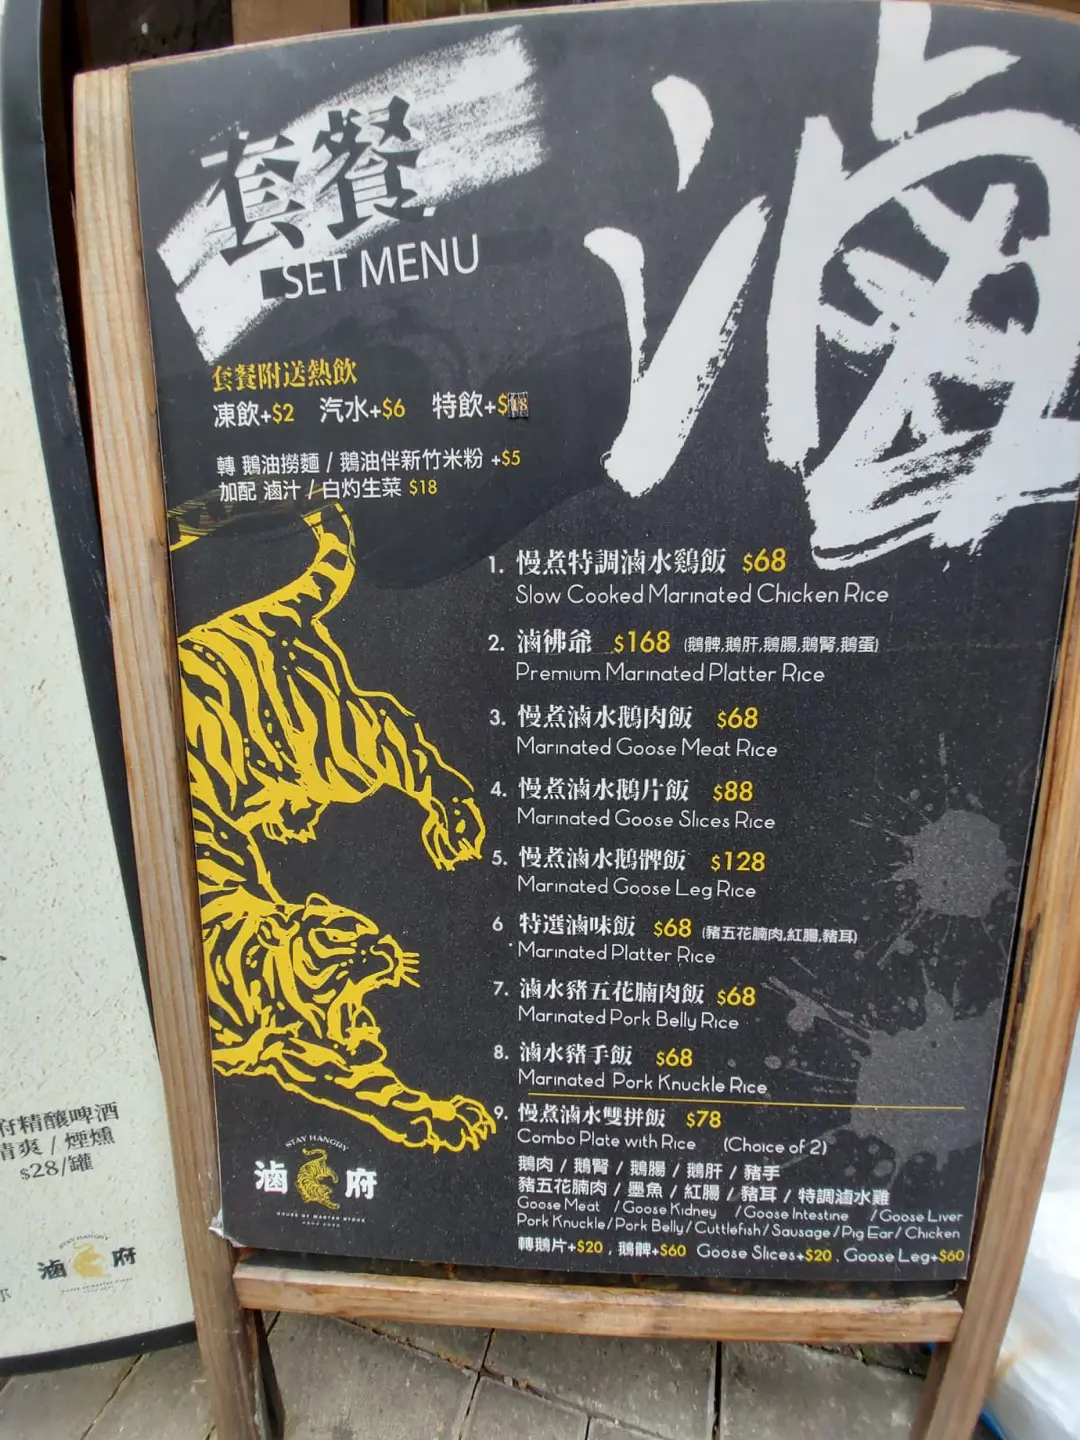 滷
套餐
SET MENU
套餐附送熱飲
凍飲+$2 汽水+$6 特飲+$18
轉 鵝油撈麵 / 鵝油伴新竹米粉 +$5
加配 滷汁 / 白灼生菜 $18
1. 慢煮特調滷水鷄飯 $68
Slow Cooked Marinated Chicken Rice
2. 滷彿爺 $168 (鵝髀,鵝肝,鵝腸,鵝腎,鵝蛋)
Premium Marinated Platter Rice
3. 慢煮滷水鵝肉飯 $68
Marinated Goose Meat Rice
4. 慢煮滷水鵝片飯 $88
Marinated Goose Slices Rice
5. 慢煮滷水鵝髀飯 $128
Marinated Goose Leg Rice
6. 特選滷味飯 $68 (豬五花腩肉,紅腸,豬耳)
Marinated Platter Rice
7. 滷水豬五花腩肉飯 $68
Marinated Pork Belly Rice
8. 滷水豬手飯 $68
Marinated Pork Knuckle Rice
9. 慢煮滷水雙拼飯 $78
Combo Plate with Rice (Choice of 2)
鵝肉 / 鵝腎 / 鵝腸 / 鵝肝 / 豬手
豬五花腩肉 / 墨魚 / 紅腸 / 豬耳 / 特調滷水雞
Goose Meat / Goose Kidney / Goose Intestine / Goose Liver
Pork Knuckle / Pork Belly / Cuttlefish / Sausage / Pig Ear / Chicken
轉鵝片+$20 , 鵝髀+$60 Goose Slices+$20 . Goose Leg+$60
STAY HANGRY
滷府
府精釀啤酒
清爽 / 煙燻
$28/罐
滷府